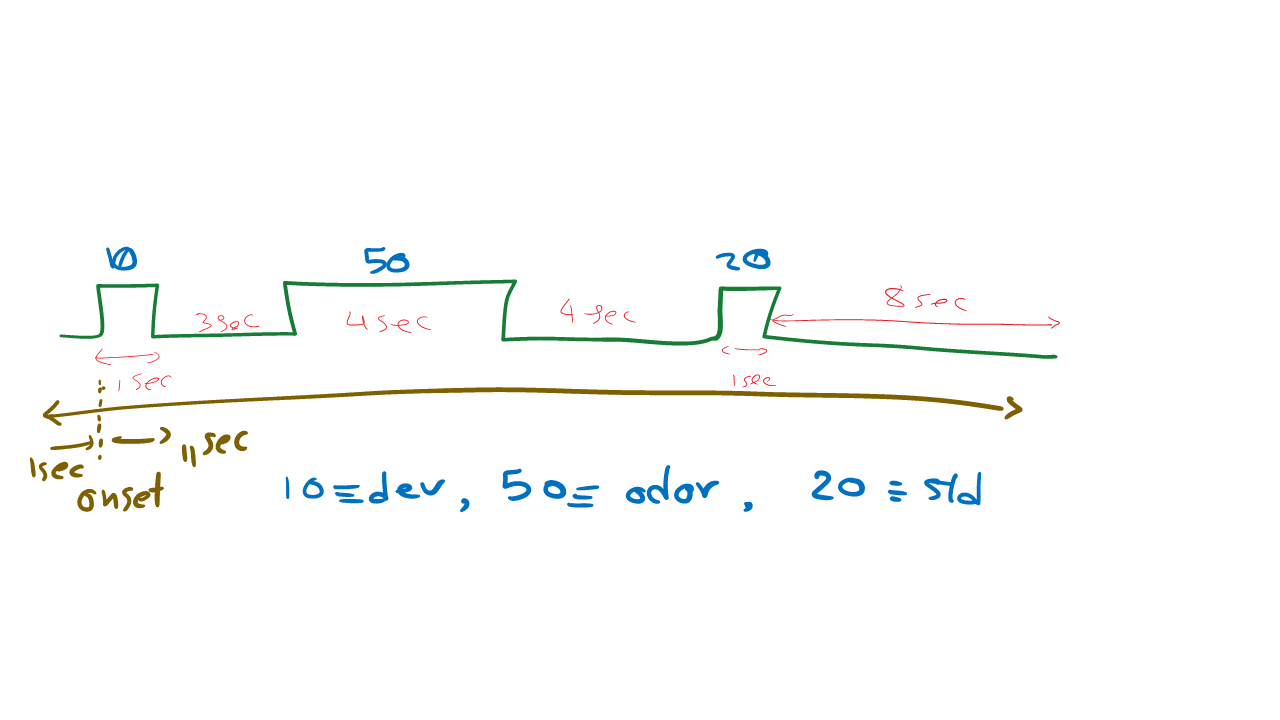 10 50 20
3sec 4sec 4sec 8sec
1sec 1sec
1sec onset 11sec
10≡dev, 50≡ odor, 20 ≡ std